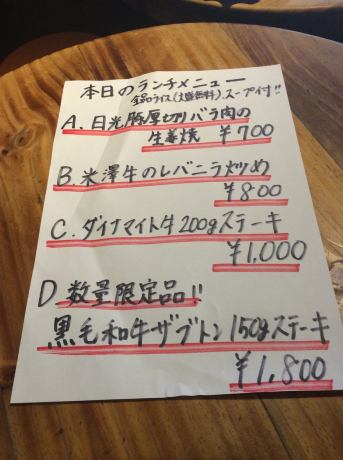 本日のランチメニュー
全品ライス(大盛無料)、スープ付!!
A. 日光豚厚切りバラ肉の
生姜焼 ¥700
B. 米澤牛のレバニラ炒め
¥800
C. ダイナマイト牛200gステーキ
¥1,000
D 数量限定品!!
黒毛和牛ザブトン150gステーキ
¥1,800